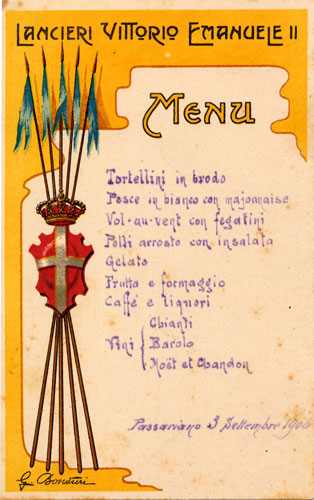 LANCIERI VITTORIO EMANUELE II
MENU
Tortellini in brodo
Pesce in bianco con majonnaise
Vol-au-vent con fegatini
Polli arrosto con insalata
Gelato
Frutta e formaggio
Caffé e liquori
Vini
Chianti
Barolo
Moët et Chandon
Passariano 3 Settembre 1906
G.